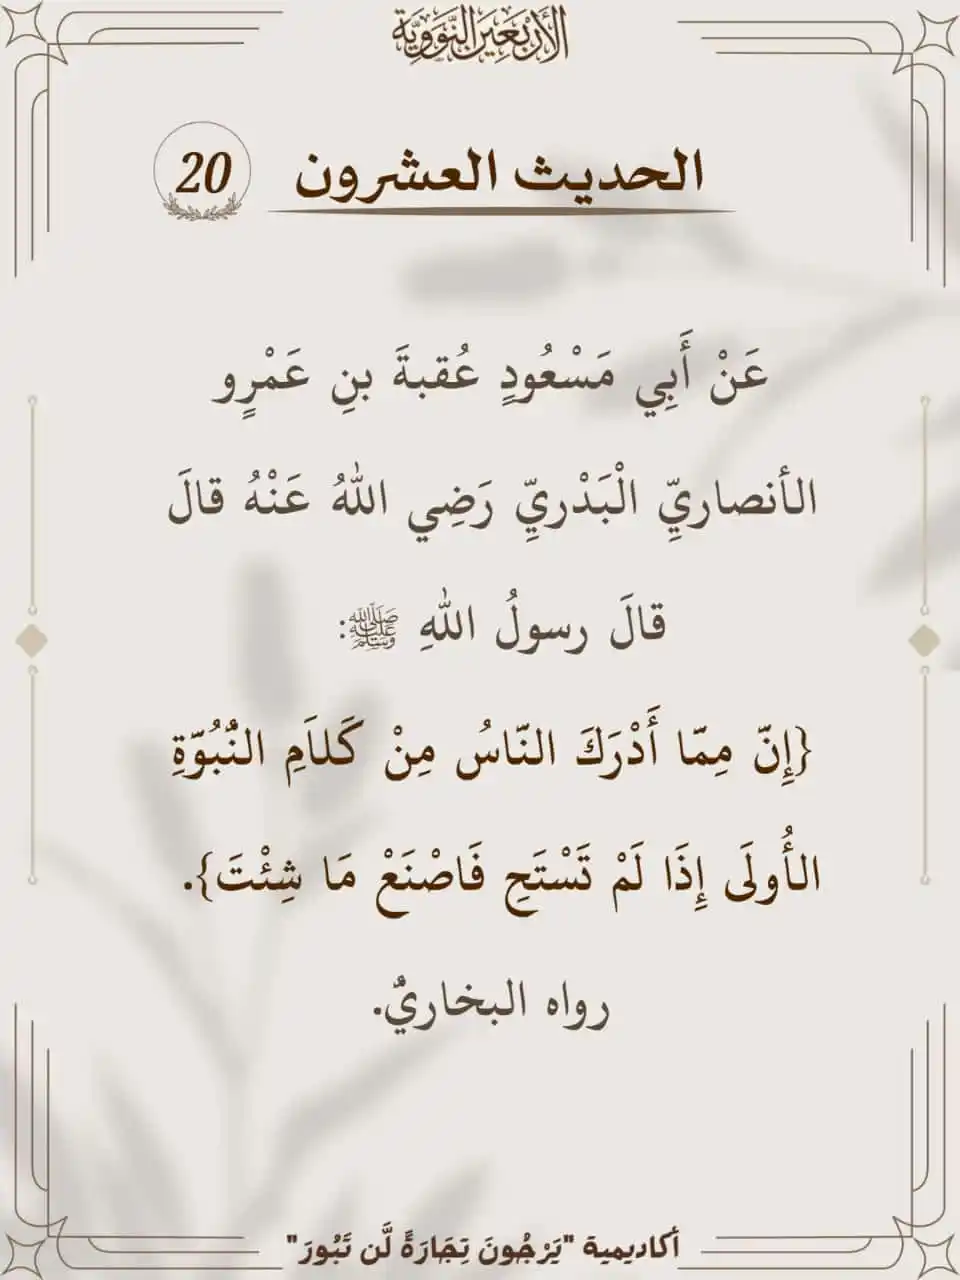 الأربعين النووية
الحديث العشرون 20
عَنْ أَبِي مَسْعُودٍ عُقبةَ بنِ عَمْرٍو
الأنصاريِّ الْبَدْريِّ رَضِي اللهُ عَنْهُ قالَ
قالَ رسولُ اللهِ ﷺ:
{إِنّ مِمّا أَدْرَكَ النّاسُ مِنْ كَلاَمِ النُّبُوّةِ
الأُولَى إِذَا لَمْ تَسْتَحِ فَاصْنَعْ مَا شِئْتَ}.
رواه البخاريُّ.
أكاديمية "يَرْجُونَ تِجَارَةً لَّن تَبُورَ"